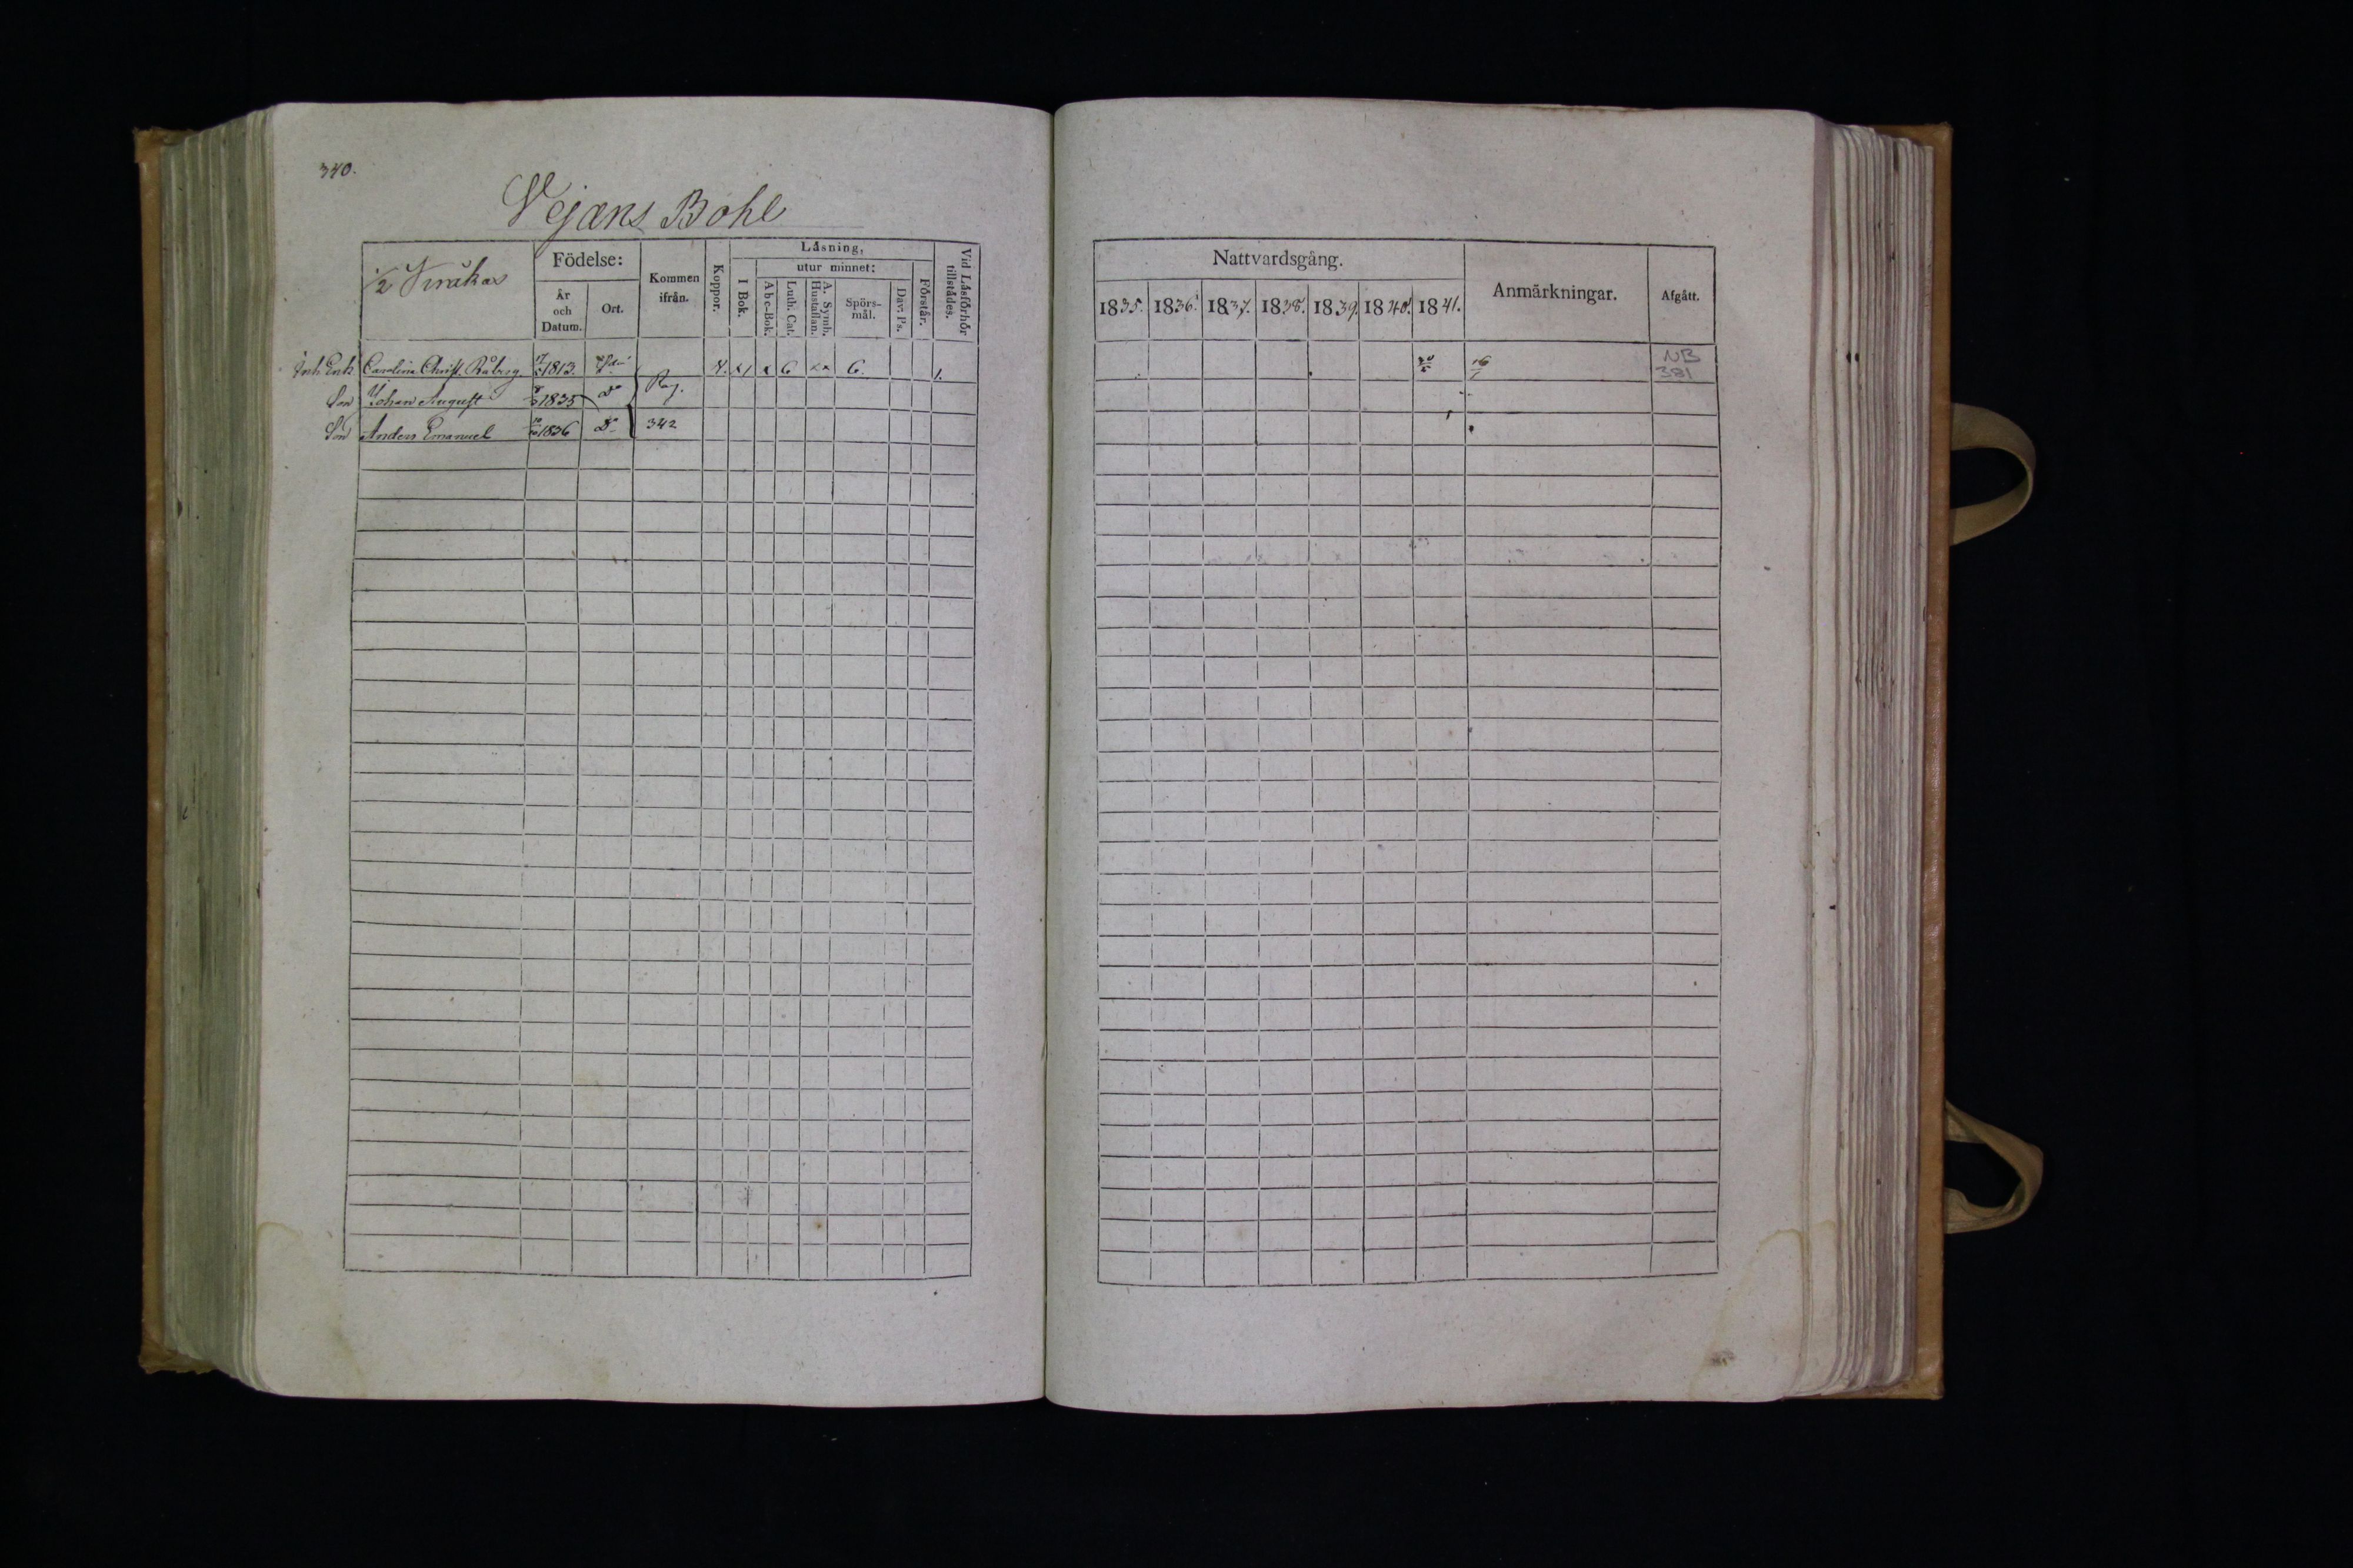 340.
Vejans Bohl
1/2
Födelse:
År och Datum.
Ort.
Kommen ifrån.
Koppor.
Läsning,
I Bok.
utur minnet:
Abc-Bok.
Luth. Cat.
A. Symb. Hustaflan.
Spörs-mål.
Dav. Ps.
Förstår.
Vid Läsförhör tillstädes.
Nattvardsgång.
1835. 1836. 1837. 1838. 1839. 1840. 1841.
Anmärkningar.
Afgått.
Inh. Enk. Carolina Christ. Råberg. 1813. 6 6. 1. NB
381
Son Johan August 1835 Do
Son Anders Emanuel 1836 Do 342